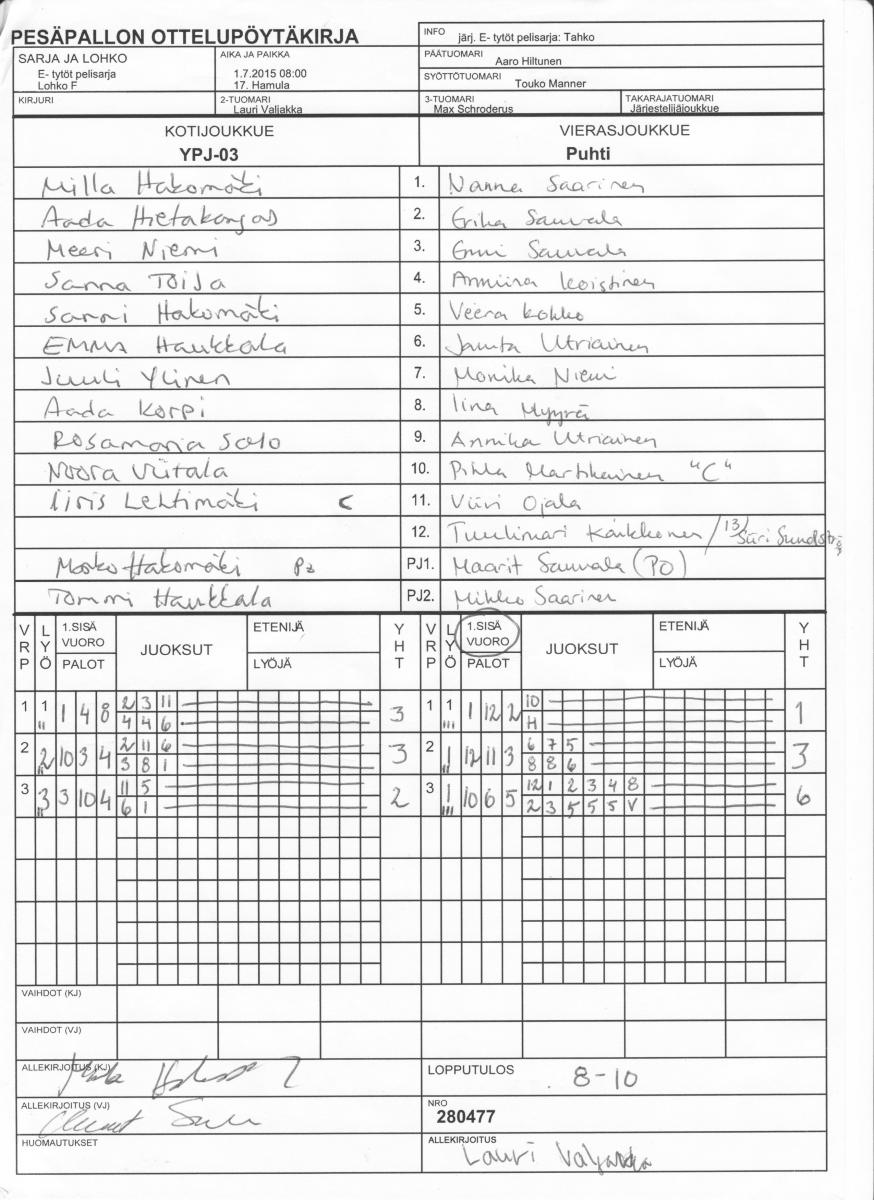 PESÄPALLON OTTELUPÖYTÄKIRJA
INFO järj. E- tytöt pelisarja: Tahko
SARJA JA LOHKO
E- tytöt pelisarja
Lohko F
AIKA JA PAIKKA
1.7.2015 08:00
17. Hamula
PÄÄTUOMARI
Aaro Hiltunen
SYÖTTÖTUOMARI
Touko Manner
KIRJURI
2-TUOMARI
Lauri Valjakka
3-TUOMARI
Max Schroderus
TAKARAJATUOMARI
Järjestelijäjoukkue
KOTIJOUKKUE
YPJ-03
VIERASJOUKKUE
Puhti
Milla Hakomäki 1. Nanna Saarinen
Aada Hietakangas 2. Erika Sauvala
Meeri Niemi 3. Enni Sauvala
Sanna Toija 4. Anniina Koistinen
Sanni Hakomäki 5. Veera Kokko
EMMA Haukkala 6. Utriainen
Juuli Ylinen 7. Monika Niemi
Aada Korpi 8. Iina Myyrä
Rosamaria Salo 9. Annika Utriainen
Noora Viitala 10. Pihla Martikainen "C"
Iiris Lehtimäki C 11. Viivi Ojala
12. Tuulimari Karkkonen / 13 Siiri Sundström
Hakomäki PJ1. Maarit Sauvala (PO)
Tommi Haukkala PJ2. Mikko Saarinen
VRP LYÖ 1.SISÄ VUORO PALOT JUOKSUT ETENIJÄ LYÖJÄ YHT VRP LYÖ 1.SISÄ VUORO PALOT JUOKSUT ETENIJÄ LYÖJÄ YHT
1 1 1 4 8 2 3 11 3 1 1 1 12 2 10 1
4 4 6 H
2 2 10 3 4 2 11 6 3 2 1 12 11 3 6 7 5 3
3 8 1 8 8 6
3 3 3 10 4 11 5 2 3 1 10 6 5 12 1 2 3 4 8 6
6 1 2 3 5 5 5 V
VAIHDOT (KJ)
VAIHDOT (VJ)
ALLEKIRJOITUS (KJ)
LOPPUTULOS 8-10
ALLEKIRJOITUS (VJ)
NRO
280477
HUOMAUTUKSET
ALLEKIRJOITUS
Lauri Valjakka